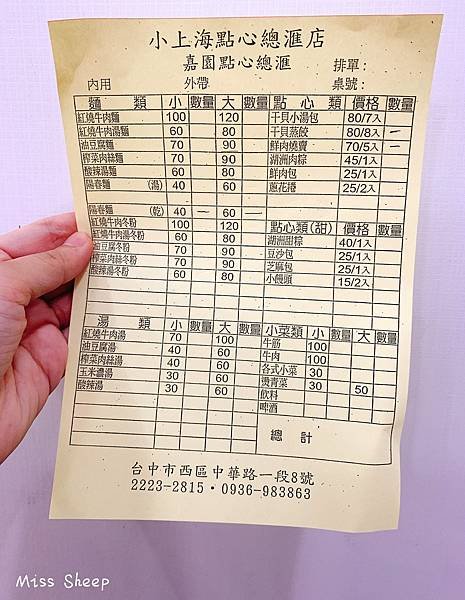 小上海點心總滙店
嘉園點心總滙
排單：
內用 外帶 桌號：
麵類 小 數量 大 數量 點心類 價格 數量
紅燒牛肉麵 100 120 干貝小湯包 80/7入
紅燒牛肉湯麵 60 80 干貝蒸餃 80/8入 一
油豆腐麵 70 90 鮮肉燒賣 70/5入 一
榨菜肉絲麵 70 90 湖洲肉粽 45/1入
酸辣湯麵 60 80 鮮肉包 25/1入
陽春麵 (湯) 40 60 蔥花捲 25/2入
陽春麵 (乾) 40 一 60 一
點心類(甜) 價格 數量
紅燒牛肉冬粉 100 120
紅燒牛肉湯冬粉 60 80 湖洲甜粽 40/1入
油豆腐冬粉 70 90 豆沙包 25/1入
榨菜肉絲冬粉 70 90 芝麻包 25/1入
酸辣湯冬粉 60 80 小饅頭 15/2入
湯類 小 數量 大 數量 小菜類 小 數量 大 數量
紅燒牛肉湯 70 100 牛筋 100
油豆腐湯 40 60 牛肉 100
榨菜肉絲湯 40 60 各式小菜 30
玉米濃湯 30 60 燙青菜 30 50
酸辣湯 30 60 飲料
啤酒
總計
台中市西區中華路一段8號
2223-2815・0936-983863
Miss Sheep